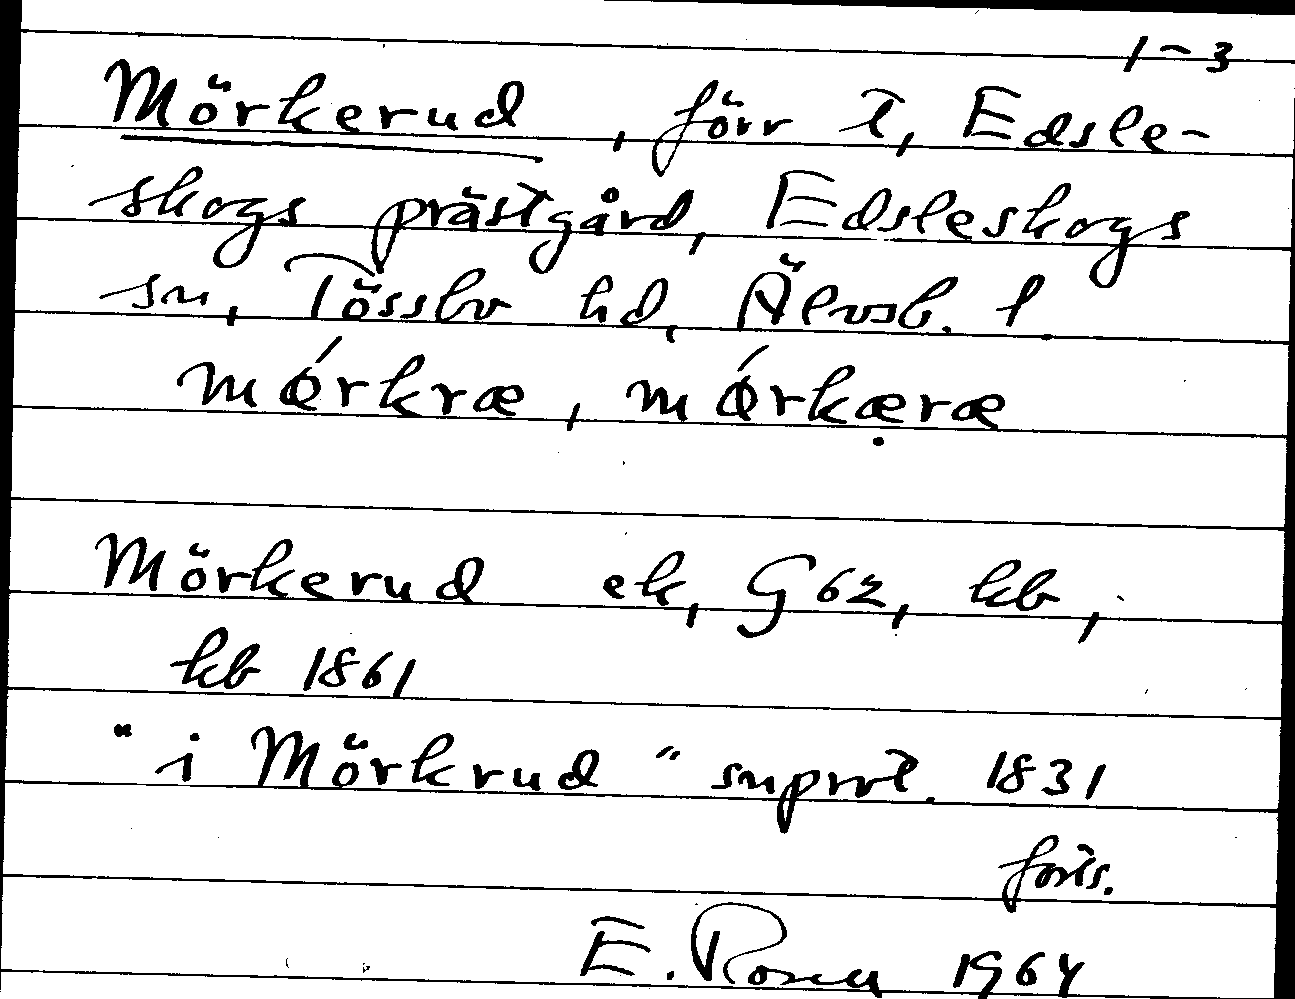 1-3
Mörkerud, förr t, Edsle-
skogs prästgård, Edsleskogs
sn, Tössbo hd, Älvsb. l.
mǿrkræ, mǿrkæ̣ræ
Mörkerud ek, G 62, kb,
kb 1861
"i Mörkrud" snprot. 1831
forts.
E. Rosen 1964